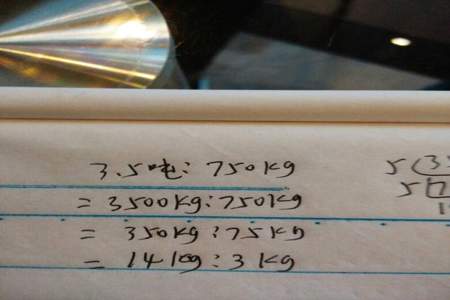 3.5吨:750kg
=3500kg:750kg
=350kg:75kg
=14kg:3kg
5 35
5 7
1